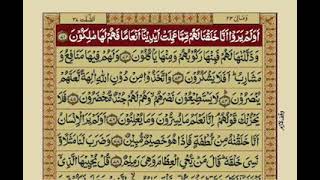 وَمَالِيَ ٢٣
اَوَلَمْ يَرَوْا اَنَّا خَلَقْنَا لَهُمْ مِّمَّا عَمِلَتْ اَيْدِيْنَاۤ اَنْعَامًا فَهُمْ لَهَا مٰلِكُوْنَ ﴿٧١﴾
وَذَلَّلْنٰهَا لَهُمْ فَمِنْهَا رَكُوْبُهُمْ وَمِنْهَا يَاْكُلُوْنَ ﴿٧٢﴾ وَلَهُمْ فِيْهَا مَنَافِعُ وَ
مَشَارِبُ ؕ اَفَلَا يَشْكُرُوْنَ ﴿٧٣﴾ وَاتَّخَذُوْا مِنْ دُوْنِ اللّٰهِ اٰلِهَةً لَّعَلَّهُمْ
يُنْصَرُوْنَ ﴿٧٤﴾ لَا يَسْتَطِيْعُوْنَ نَصْرَهُمْ ۙ وَهُمْ لَهُمْ جُنْدٌ مُّحْضَرُوْنَ ﴿٧٥﴾ فَلَا
يَحْزُنْكَ قَوْلُهُمْ ۘ اِنَّا نَعْلَمُ مَا يُسِرُّوْنَ وَمَا يُعْلِنُوْنَ ﴿٧٦﴾ اَوَلَمْ يَرَ الْاِنْسَانُ
اَنَّا خَلَقْنٰهُ مِنْ نُّطْفَةٍ فَاِذَا هُوَ خَصِيْمٌ مُّبِيْنٌ ﴿٧٧﴾ وَضَرَبَ لَنَا مَثَلًا وَّ
نَسِيَ خَلْقَهٗ ؕ قَالَ مَنْ يُّحْيِ الْعِظَامَ وَهِيَ رَمِيْمٌ ﴿٧٨﴾ قُلْ يُحْيِيْهَا الَّذِيْۤ